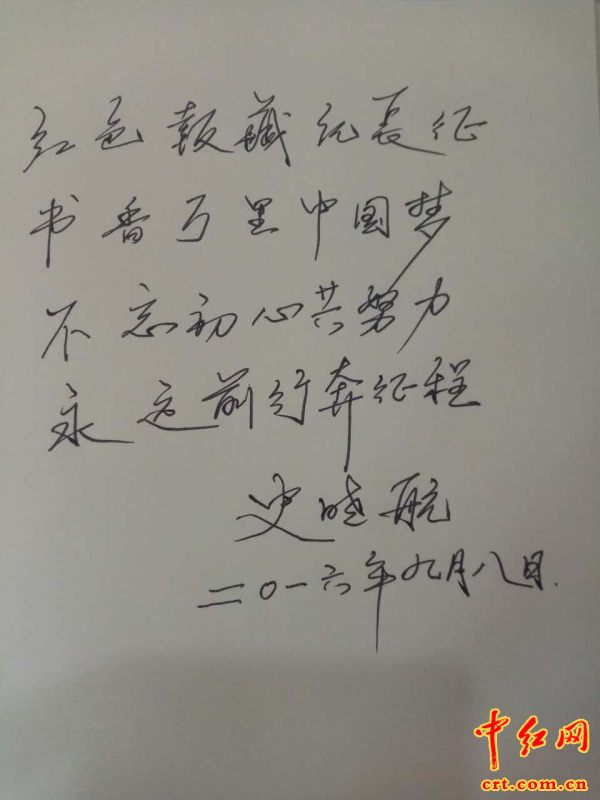 红色報藏纪長征
书香万里中国梦
不忘初心共努力
永远前行奔征程
史晓航
二〇一六年九月八日.
中红网
crt.com.cn